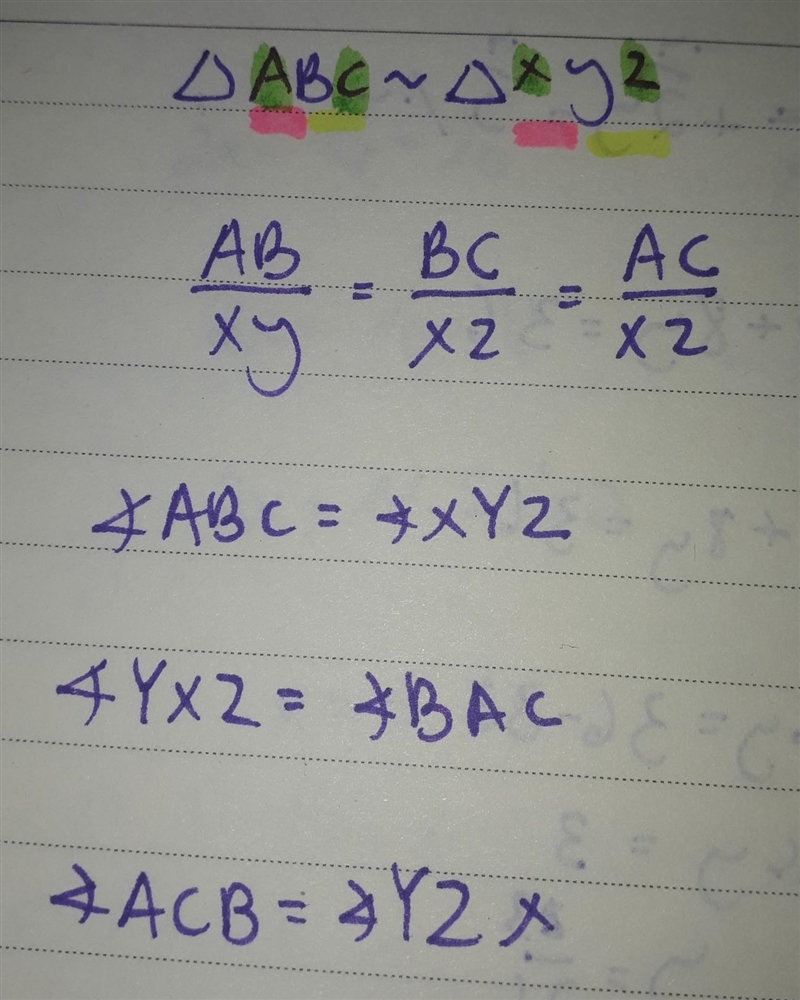 △ABC ~ △xyz
AB/xy = BC/xz = AC/xz
∢ABC = ∢XYZ
∢YXZ = ∢BAC
∢ACB = ∢YZX